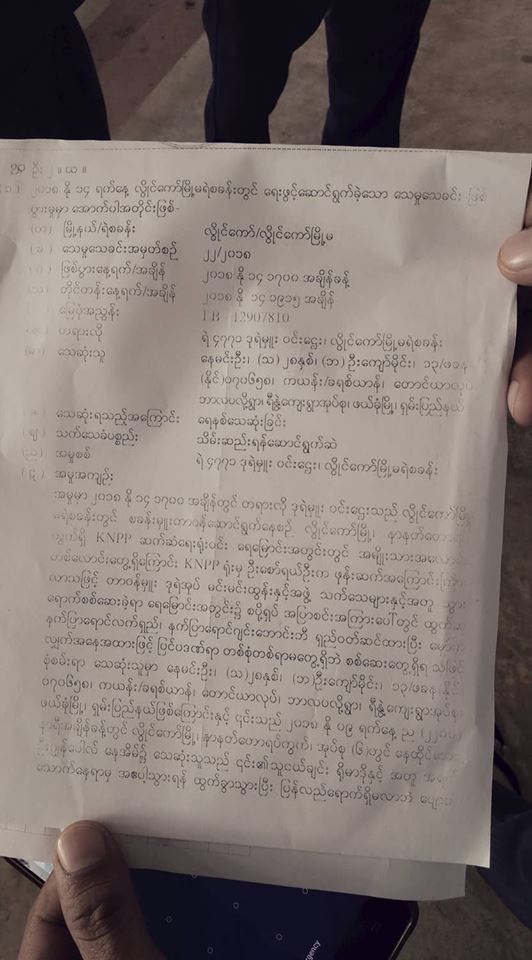 ဦး ၂ ။ ယ ။
(၁) ၂၀၁၈ နို ၁၄ ရက်နေ့ လွိုင်ကော်မြို့မရဲစခန်းတွင် ရေးဖွင့်ဆောင်ရွက်ခဲ့သော သေမှုသေခင်း ဖြစ်
ပွားမှုမှာ အောက်ပါအတိုင်းဖြစ်-
(က) မြို့နယ်/ရဲစခန်း လွိုင်ကော်/လွိုင်ကော်မြို့မ
(ခ) သေမှုသေခင်းအမှတ်စဉ် ၂၂/၂၀၁၈
(ဂ) ဖြစ်ပွားနေ့ရက်/အချိန် ၂၀၁၈ နို ၁၄ ၁၇၀၀ အချိန်ခန့်
တိုင်တန်းနေ့ရက်/အချိန် ၂၀၁၈ နို ၁၄ ၁၉၁၅ အချိန်
မြေပုံအညွှန်း LB 12907810
တရားလို ရဲ ၄၇၇၁ ဒုရဲမှူး ဝင်းဌေး၊ လွိုင်ကော်မြို့မရဲစခန်း
သေဆုံးသူ နေမင်းဦး၊ (သ) ၂၈နှစ်၊ (ဘ) ဦးကျော်မိုင်း၊ ၁၃/ဖခန
(နိုင်)၀၇၀၆၅၈၊ ကယန်း/ခရစ်ယာန်၊ တောင်ယာလုပ်၊
ဘာလပလို့ရွာ၊ ရီနွဲ့ကျေးရွာအုပ်စု၊ ဖယ်ခုံမြို့၊ ရှမ်းပြည်နယ်
သေဆုံးရသည့်အကြောင်း ရေနစ်သေဆုံးခြင်း
(ဈ) သက်သေခံပစ္စည်း သိမ်းဆည်းရန်ဆောင်ရွက်ဆဲ
(ည) အမှုစစ် ရဲ ၄၇၇၁ ဒုရဲမှူး ဝင်းဌေး၊ လွိုင်ကော်မြို့မရဲစခန်း
(ဋ) အမှုအကျဉ်း
အမှုမှာ ၂၀၁၈ နို ၁၄ ၁၇၀၀ အချိန်တွင် တရားလို ဒုရဲမှူး ဝင်းဌေးသည် လွိုင်ကော်မြို့မ
ရဲစခန်းတွင် စခန်းမှူးတာဝန်ဆောင်ရွက်နေစဉ် လွိုင်ကော်မြို့၊ နာနတ်တော
ကွက်ရှိ KNPP ဆက်ဆံရေးရုံးဝင်း ရေမြောင်းအတွင်းတွင် အမျိုးသားအလောင်း
တစ်လောင်းတွေ့ရှိကြောင်း KNPP ရုံးမှ ဦးစော်ရယ်ဦးက ဖုန်းဆက်အကြောင်းကြား
လာသဖြင့် တာဝန်မှူး ဒုရဲအုပ် မင်းမင်းထွန်းနှင့်အဖွဲ့ သက်သေများနှင့်အတူ သွား
ရောက်စစ်ဆေးခဲ့ရာ ရေမြောင်းအတွင်း၌ စပို့ရှပ် အပြာစင်းအကြားပေါ်တွင်
နက်ပြာရောင်လက်ရှည်၊ နက်ပြာရောင်ဂျင်းဘောင်းဘီ ရှည်ဝတ်ဆင်ထားပြီး
လျှက်အနေအထားဖြင့် ပြင်ပဒဏ်ရာ တစ်စုံတစ်ရာမတွေ့ရှိဘဲ စစ်ဆေးတွေ့ရှိရ သဖြင့်
စုံစမ်းရာ သေဆုံးသူမှာ နေမင်းဦး၊ (သ)၂၈နှစ်၊ (ဘ)ဦးကျော်မိုင်း၊ ၁၃/ဖခန(နိုင်)
၀၇၀၆၅၈၊ ကယန်း/ခရစ်ယာန်၊ တောင်ယာလုပ်၊ ဘာလပလို့ရွာ၊ ရီနွဲ့ကျေးရွာအုပ်စု၊
ဖယ်ခုံမြို့၊ ရှမ်းပြည်နယ်ဖြစ်ကြောင်းနှင့် ၎င်းသည် ၂၀၁၈ နို ၀၉ ရက်နေ့ ည (၂၂၀၀)
နာရီအချိန်ခန့်တွင် လွိုင်ကော်မြို့၊ နာနတ်တောရပ်ကွက်၊ အုပ်စု (၆)တွင် နေထိုင်သော
ဦးဂျွန်ပေါလ် နေအိမ်၌ သေဆုံးသူသည် ၎င်း၏သူငယ်ချင်း ရိုမာဒိုနှင့် အတူ
သောက်နေရာမှ အပေါ့သွားရန် ထွက်ခွာသွားပြီး ပြန်လည်ရောက်ရှိမလာဘဲ ပျောက်